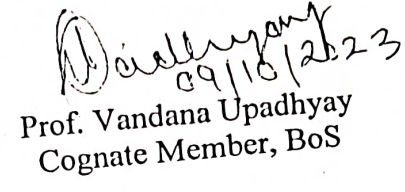 Upadhyay
09/10/2023
Prof. Vandana Upadhyay
Cognate Member, BoS